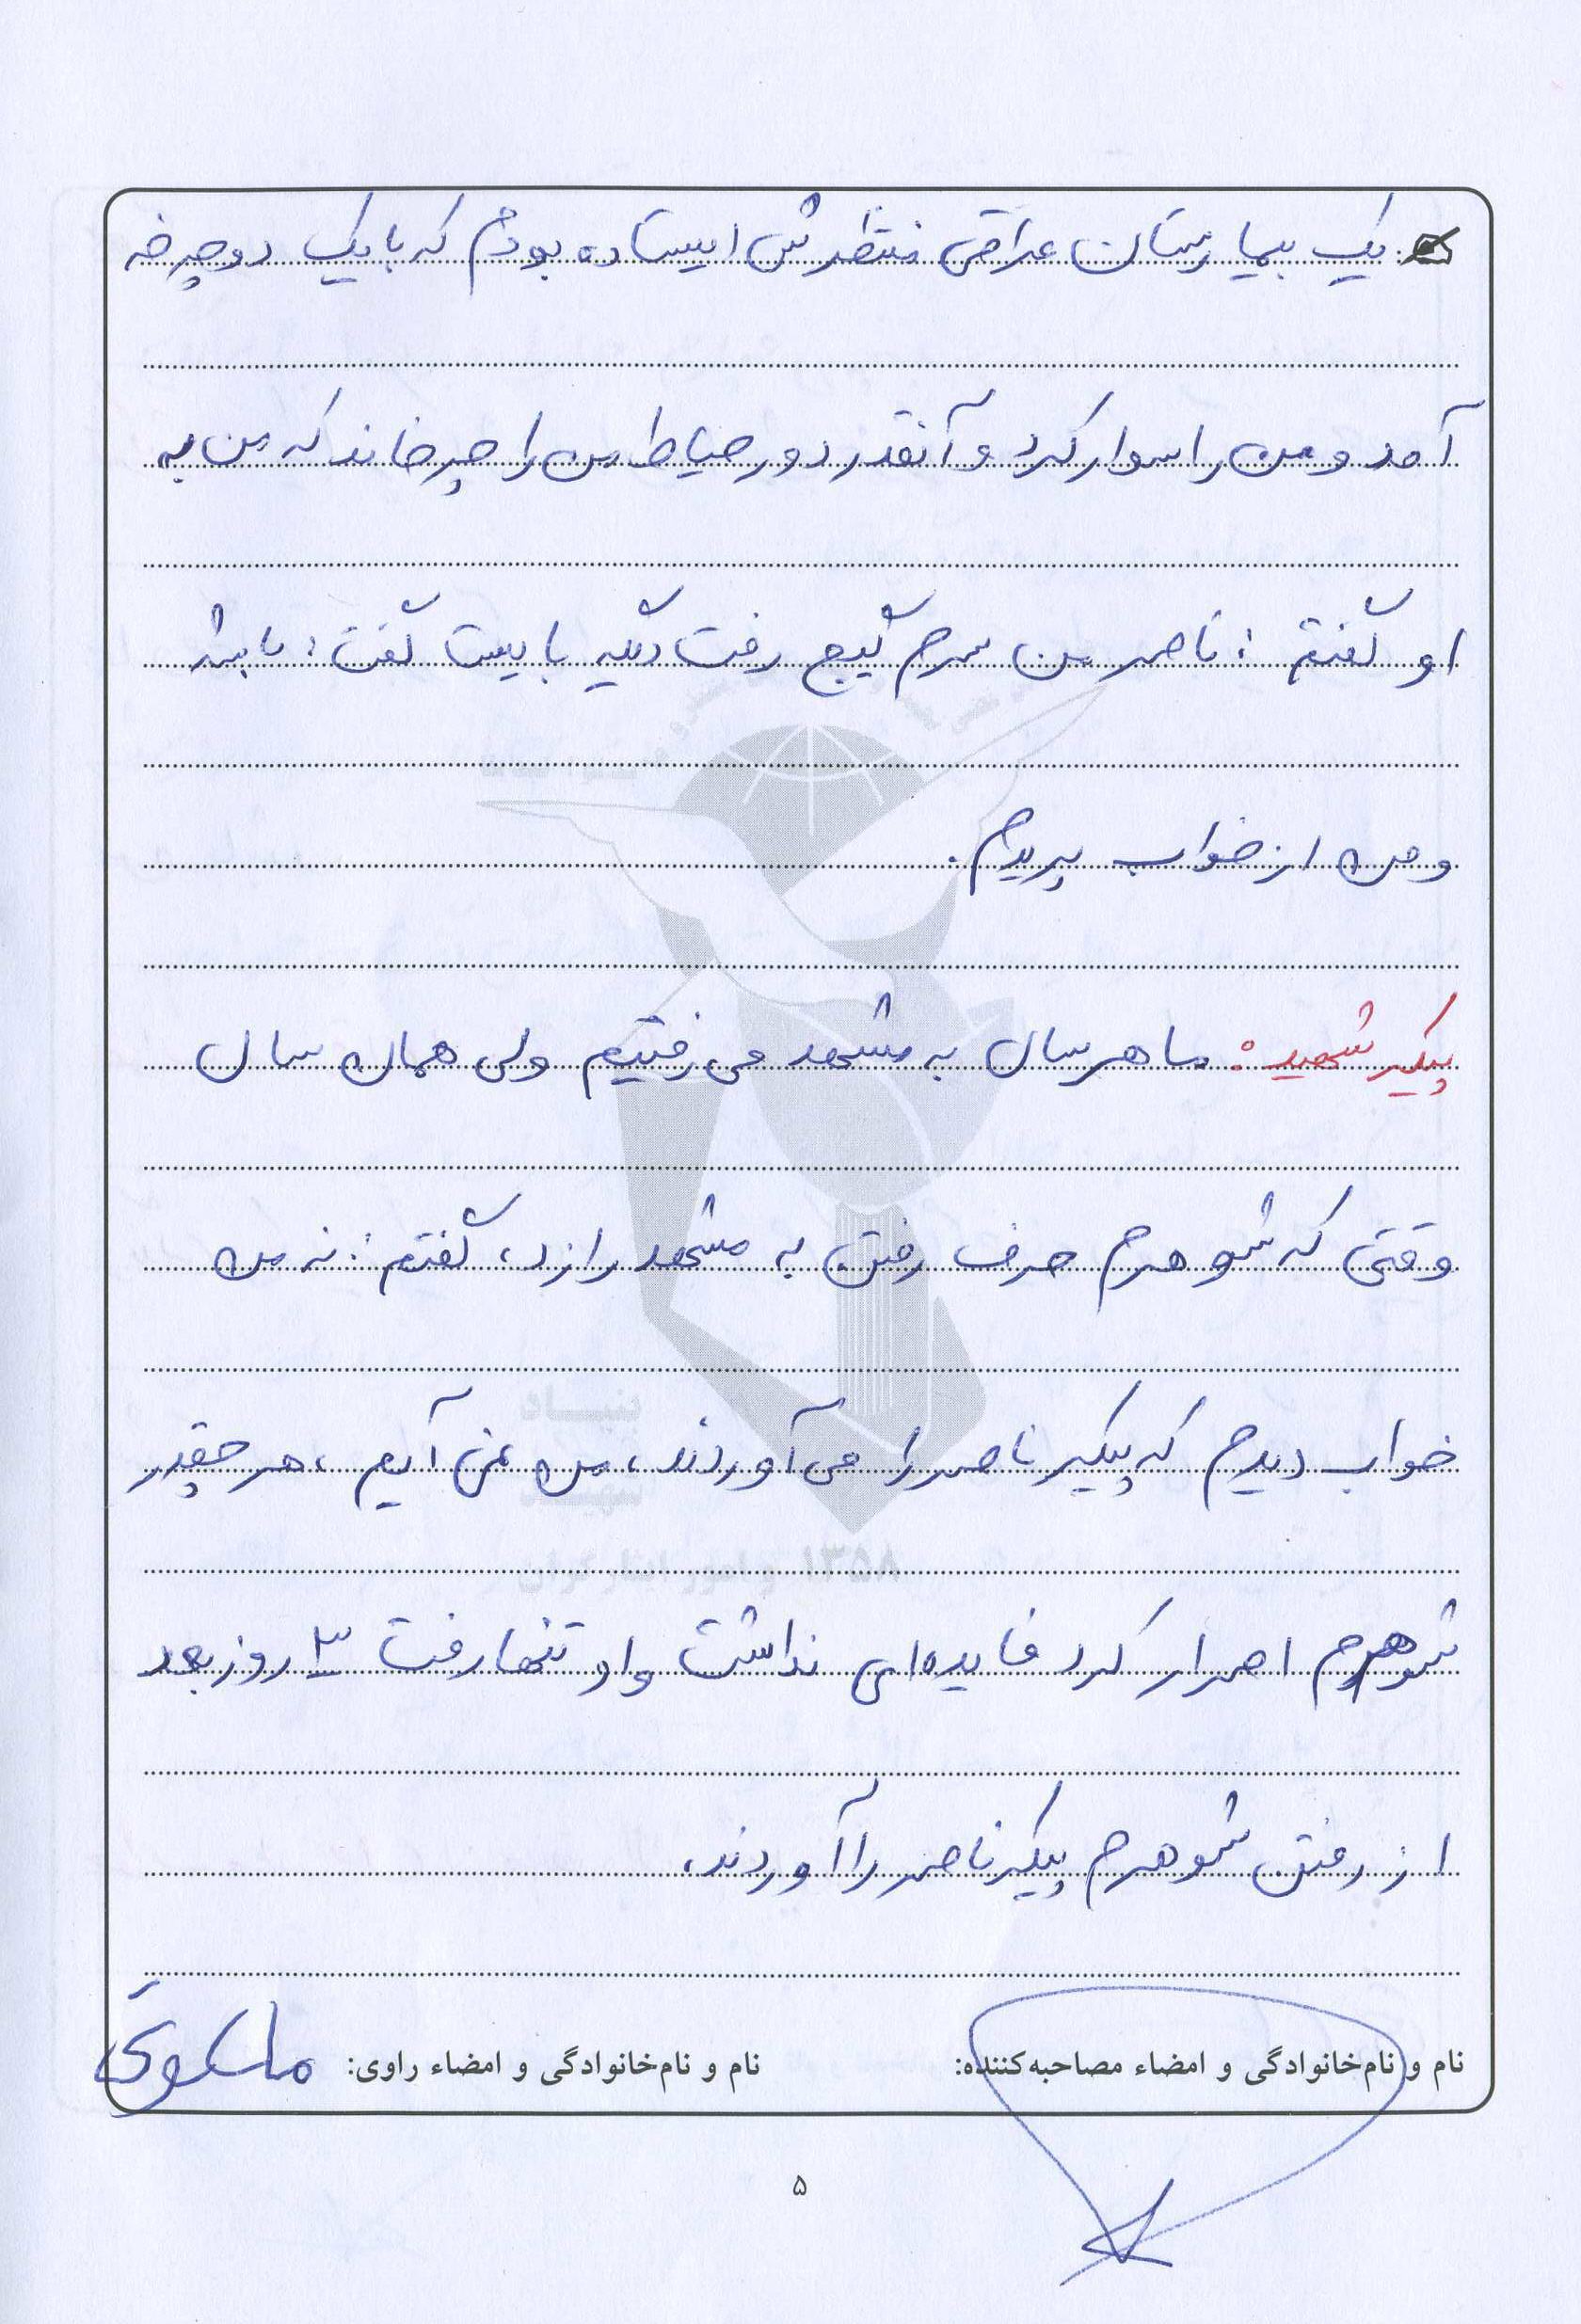 یک بیمارستان عراقی منتظرش ایستاده بودم که با یک دوچرخه
آمد و من را سوار کرد و آنقدر دور حیاط من را چرخاند که من به
او گفتم : ناصر من سرم گیج رفت دیگه بایست گفت : باشه
و من از خواب پریدم .
پیکر شهید : ما هر سال به مشهد می رفتیم ولی همان سال
وقتی که شوهرم حرف رفتن به مشهد را زد ، گفتم : نه من
خواب دیدم که پیکر ناصر را می آوردند ، من نمی آیم ، هر چقدر
شوهرم اصرار کرد فایده‌ای نداشت و او تنها رفت ۳ روز بعد
از رفتن شوهرم پیکر ناصر را آوردند .
نام و نام‌خانوادگی و امضاء مصاحبه‌کننده: نام و نام‌خانوادگی و امضاء راوی:
۵
بنیاد
شهید
و امور ایثارگران ۱۳۵۸